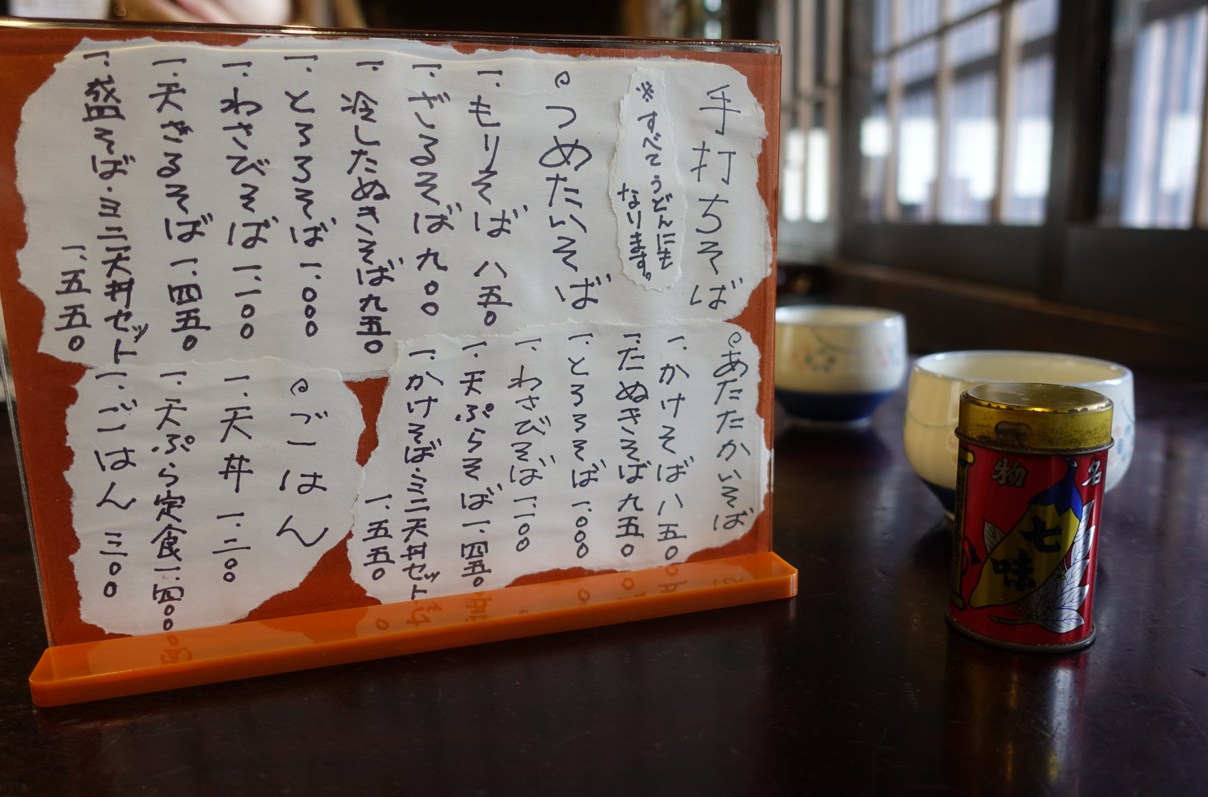 手打ちそば
※すべてうどんにも
なります。
◎つめたいそば
一、もりそば 八五〇
一、ざるそば 九〇〇
一、冷したぬきそば 九五〇
一、とろろそば 一、〇〇〇
一、わさびそば 一、一〇〇
一、天ざるそば 一、四五〇
一、盛そば・ミニ天丼セット
一、五五〇
◎あたたかいそば
一、かけそば 八五〇
一、たぬきそば 九五〇
一、とろろそば 一、〇〇〇
一、わさびそば 一、一〇〇
一、天ぷらそば 一、四五〇
一、かけそば・ミニ天丼セット
一、五五〇
◎ごはん
一、天丼 一、二〇〇
一、天ぷら定食 一、四〇〇
一、ごはん 三〇〇
名物
七味